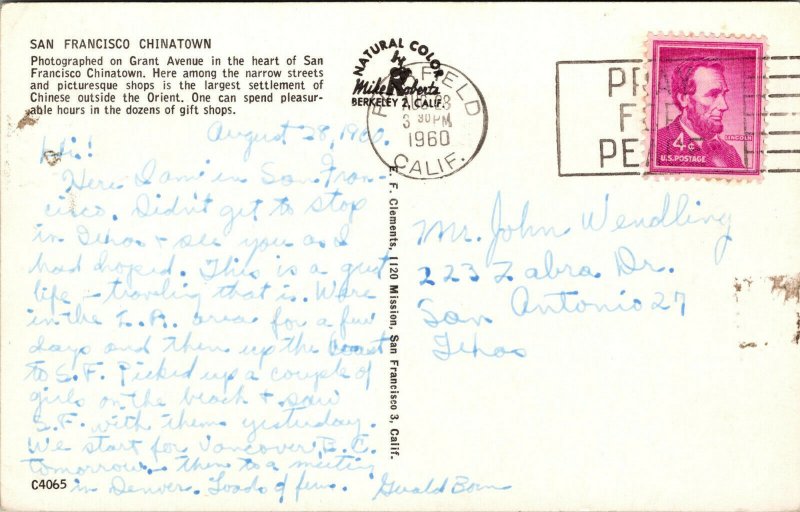 SAN FRANCISCO CHINATOWN
Photographed on Grant Avenue in the heart of San
Francisco Chinatown. Here among the narrow streets
and picturesque shops is the largest settlement of
Chinese outside the Orient. One can spend pleasur-
able hours in the dozens of gift shops.
NATURAL COLOR
by
Mike Roberts
BERKELEY 2, CALIF.
FIELD
AUG 28
3 30 PM
1960
CALIF.
PRA
F
PE
4¢
LINCOLN
U.S. POSTAGE
August 28, 1960.
Hi!
Here I am in San Fran-
cisco. Didn't get to stop
in Texas + see you as I
had hoped. This is a great
life – traveling that is. Were
in the L.A. area for a few
days and then up the coast
to S.F. Picked up a couple of
girls on the beach + saw
S.F. with them yesterday.
We start for Vancouver, B.C.
tomorrow – then to a meeting
in Denver. Loads of fun. Gerald Born
E. F. Clements, 1120 Mission, San Francisco 3, Calif.
Mr. John Wendling
223 Zabra Dr.
San Antonio 27
Texas
C4065